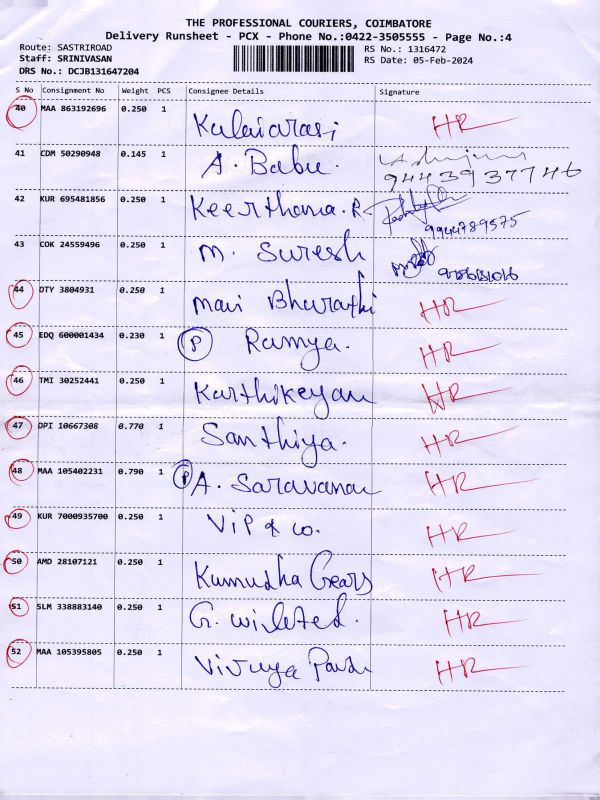 THE PROFESSIONAL COURIERS, COIMBATORE
Delivery Runsheet - PCX - Phone No.:0422-3505555 - Page No.:4
Route: SASTRIROAD RS No.: 1316472
Staff: SRINIVASAN RS Date: 05-Feb-2024
DRS No.: DCJB131647204
S No Consignment No Weight PCS Consignee Details Signature
40 MAA 863192696 0.250 1 Kalaiarasi HR
41 CDM 50290948 0.145 1 A. Babu. 9443937746
42 KUR 695481856 0.250 1 Keerthana. R. 9944789575
43 COK 24559496 0.250 1 M. Suresh
44 DTY 3804931 0.250 1 Mari Bharathi HR
45 EDQ 600001434 0.230 1 P Ramya. HR
46 TMI 30252441 0.250 1 Karthikeyan HR
47 DPI 10667308 0.770 1 Santhiya. HR
48 MAA 105402231 0.790 1 P A. Saravanan HR
49 KUR 7000935700 0.250 1 Vip & co. HR
50 AMD 28107121 0.250 1 Kumudha Gears HR
51 SLM 338883140 0.250 1 G. HR
52 MAA 105395805 0.250 1 HR